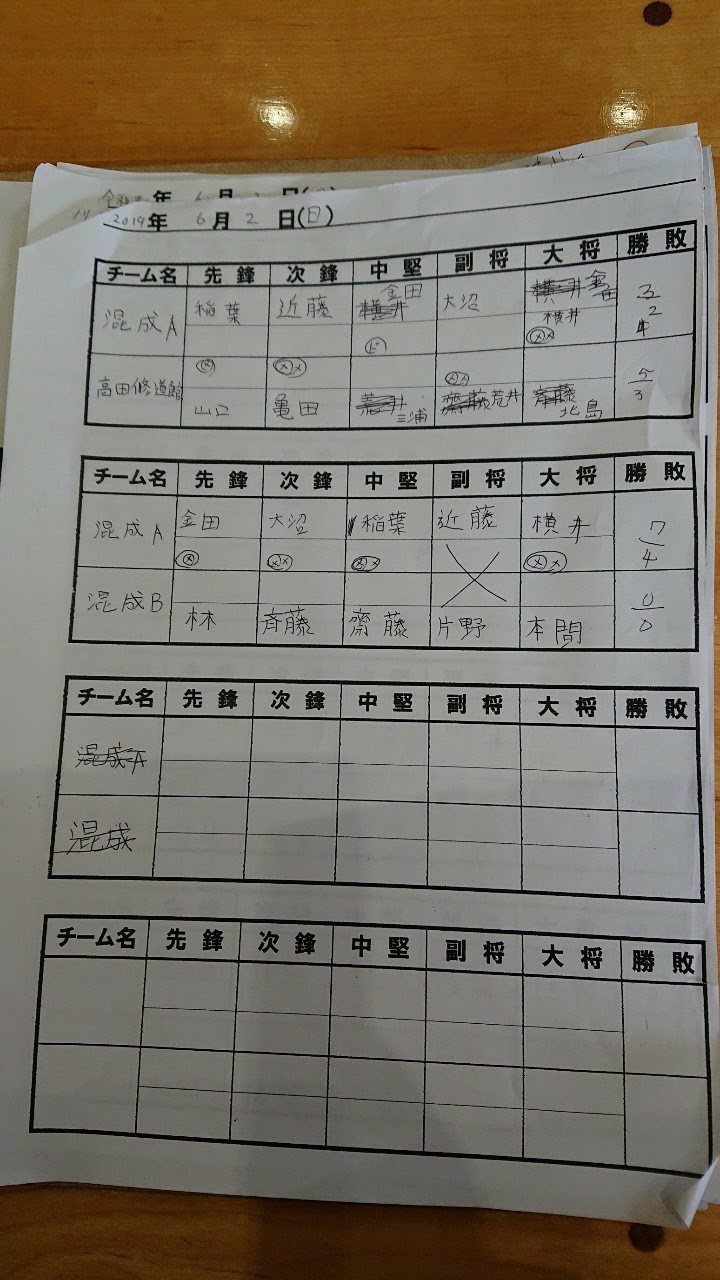 年 6月 日
2019年 6月 2 日(日)
チーム名 先鋒 次鋒 中堅 副将 大将 勝敗
混成A 稲葉 近藤 横井 金田 大沼 横井 金田 横井 3
2
メ メメ メ メメ
高田修道館 山口 亀田 荒井 三浦 齋藤 荒井 斉藤 北島 5
3
チーム名 先鋒 次鋒 中堅 副将 大将 勝敗
混成A 金田 大沼 稲葉 近藤 横井 7
4
メ メメ メメ メメ
混成B 林 斉藤 齋藤 片野 本間 0
0
チーム名 先鋒 次鋒 中堅 副将 大将 勝敗
混成A
混成
チーム名 先鋒 次鋒 中堅 副将 大将 勝敗